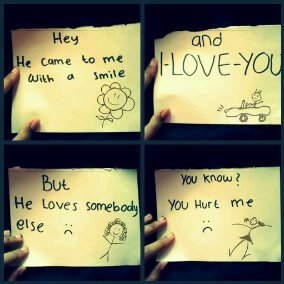 Hey
He came to me
with a smile
and
I-LOVE-YOU
But
He Loves somebody
else :(
You know?
You Hurt me
:(